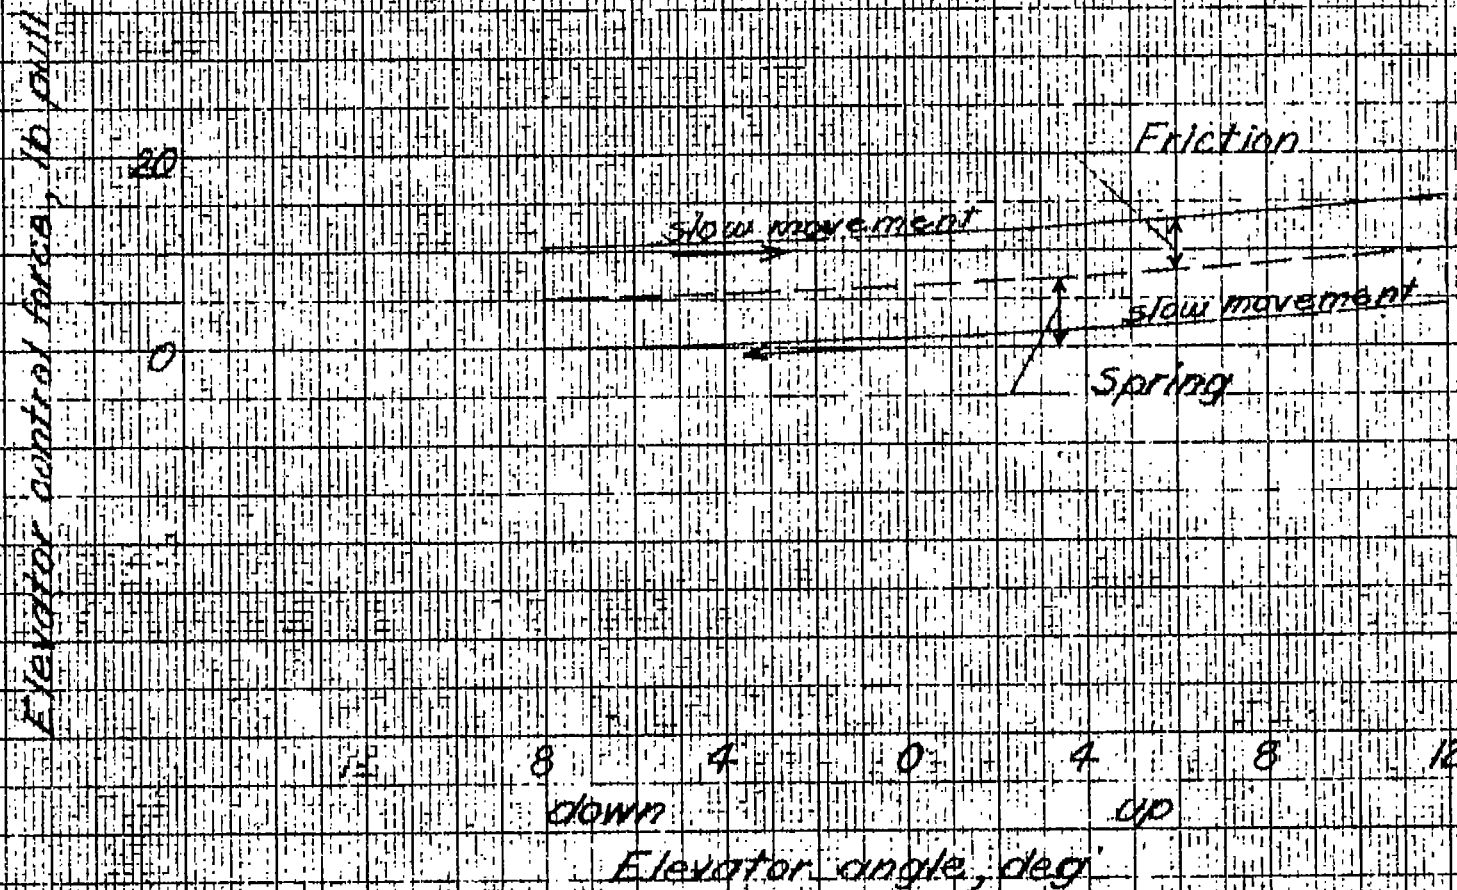 Elevator control force, lb pull
20
Friction
slow movement
slow movement
0
Spring
12 8 4 0 4 8 12
down up
Elevator angle, deg